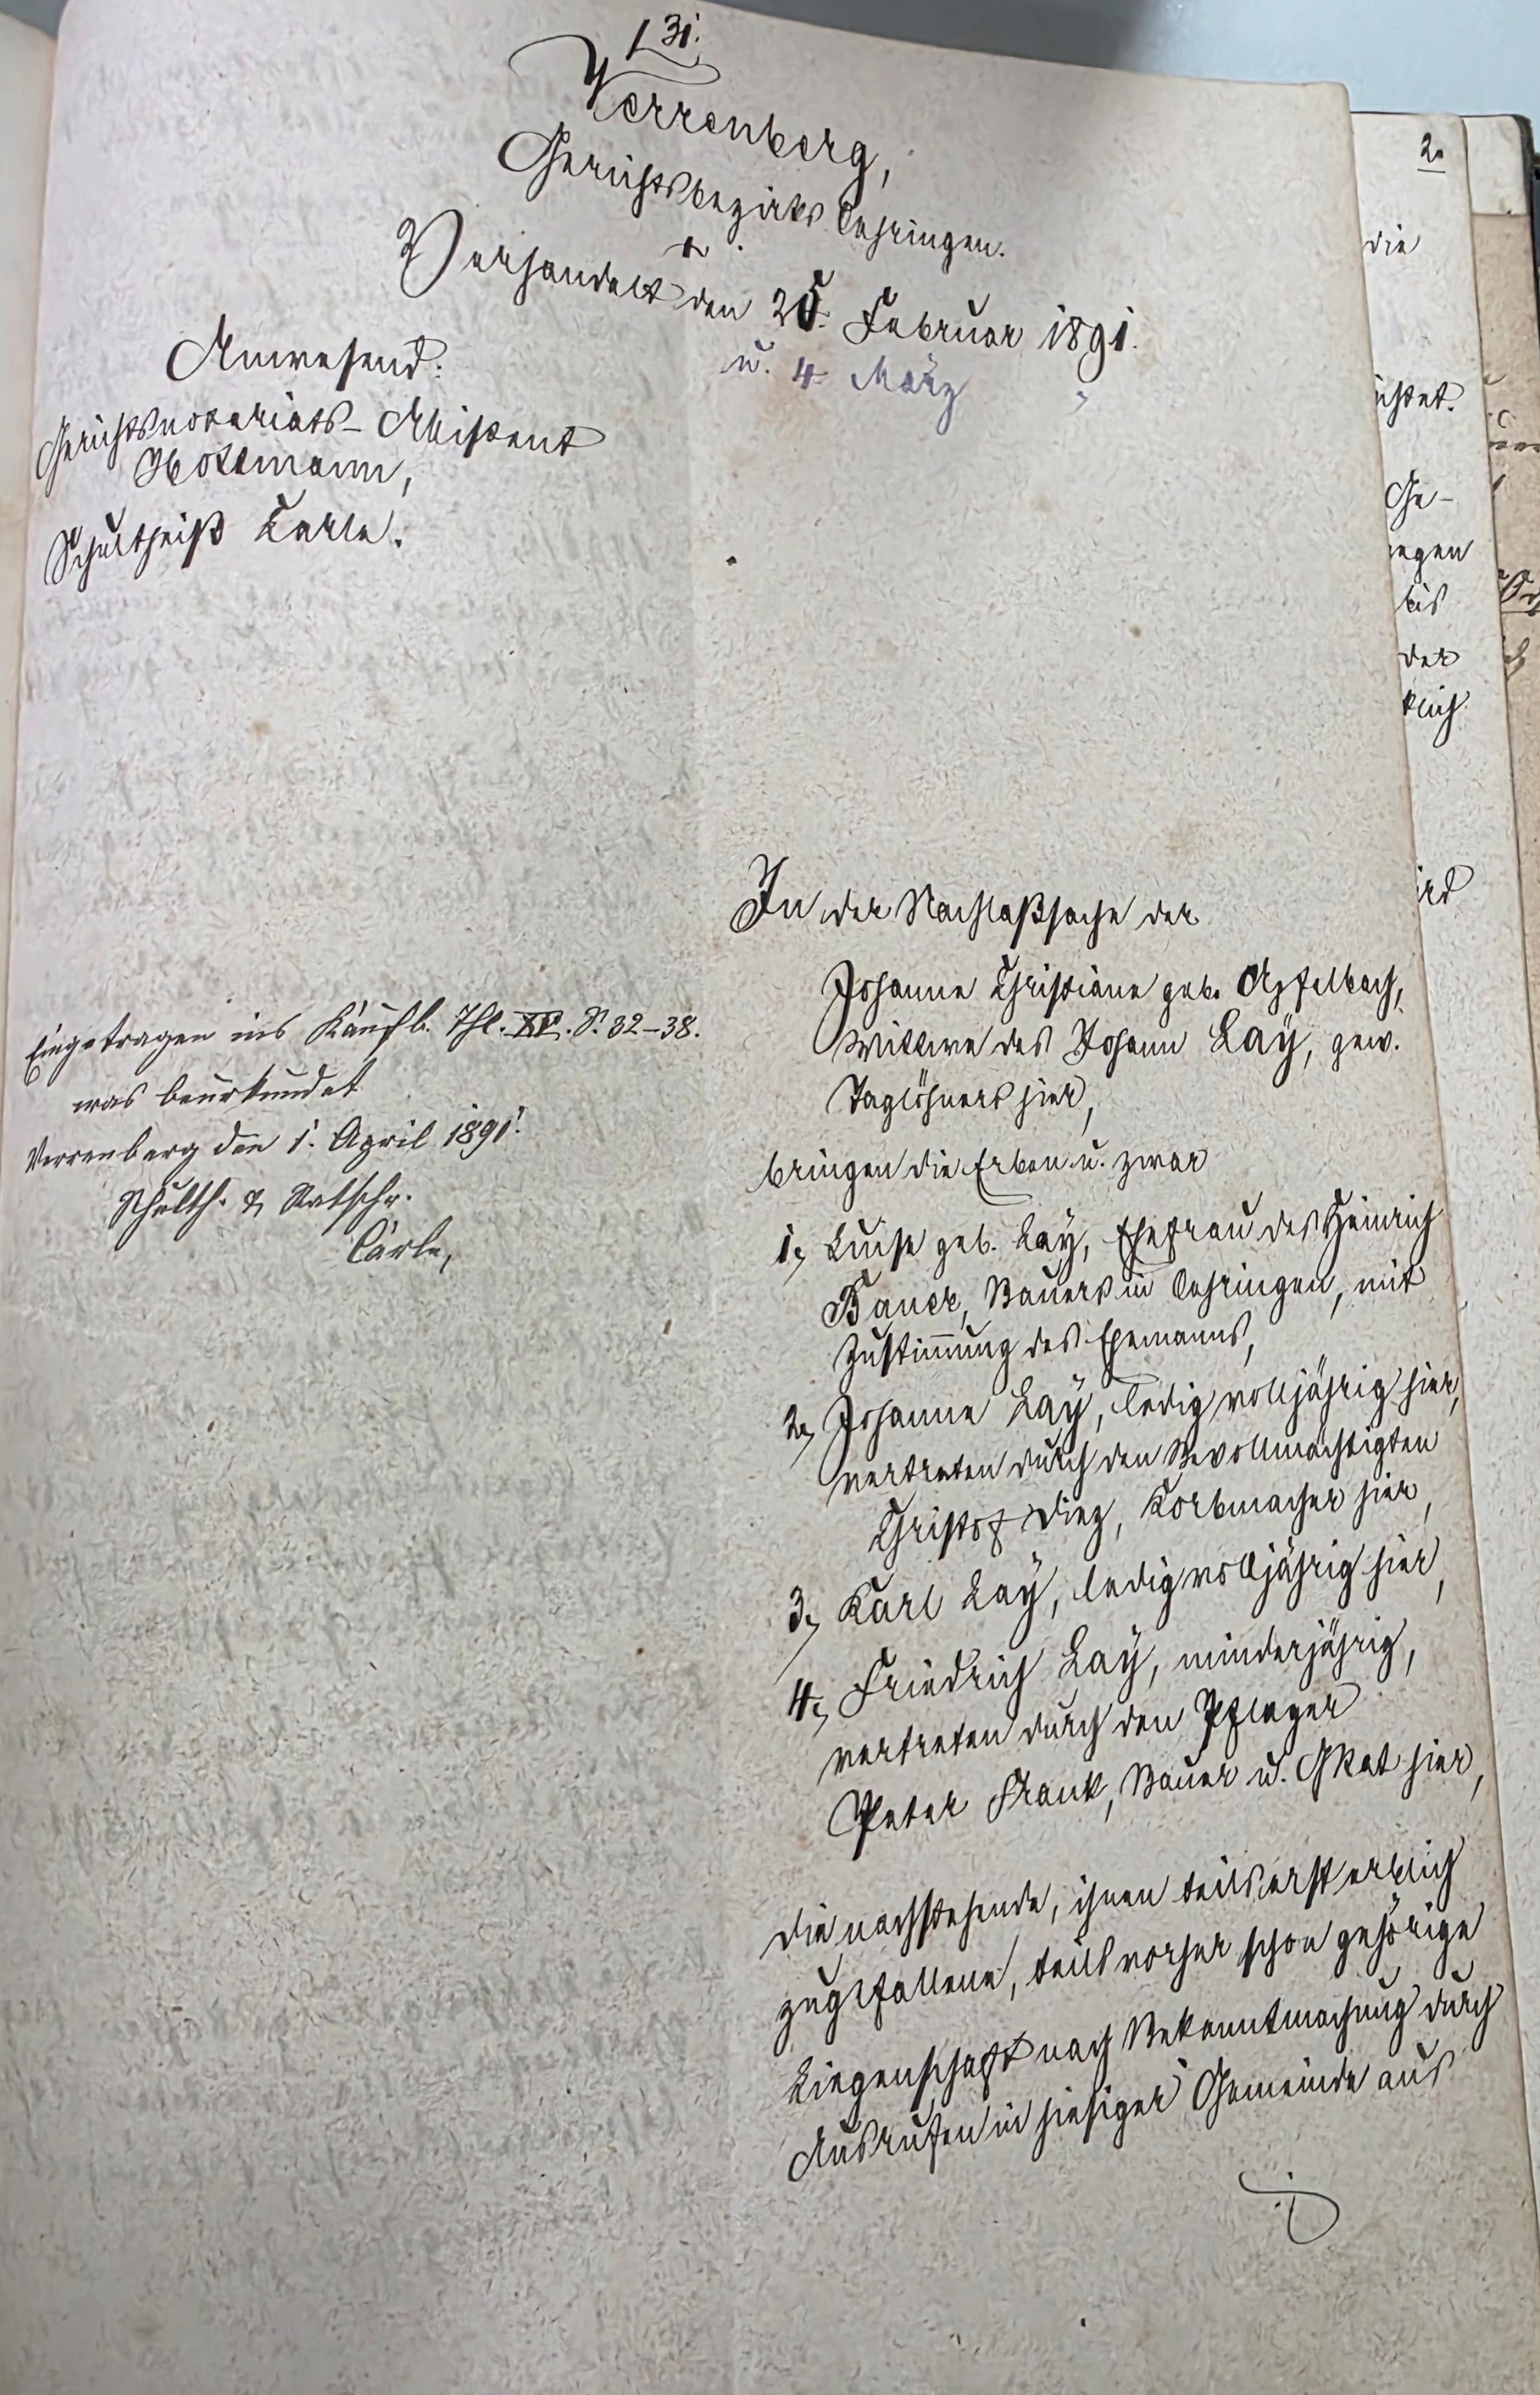 131.
Verrenberg,
Gerichtsbezirks Oehringen.
Verhandelt den 25. Februar 1891.
u. 4 März "
Anwesend:
Gerichtsnotariats-Assistent
Hottmann,
Schultheiß Carle.
In der Nachlaßsache der
Johanne Christiane geb. Apfelbach,
Wittwe des Johann Laÿ, gew.
Taglöhners hier,
bringen die Erben u. zwar
1, Luise geb. Laÿ, Ehefrau des Heinrich
Bauer, Bauers in Oehringen, mit
Zustimmung des Ehemanns,
2, Johanne Laÿ, ledig volljährig hier,
vertreten durch den Bevollmächtigten
Christof Diez, Korbmacher hier,
3, Karl Laÿ, ledig volljährig hier,
4, Friedrich Laÿ, minderjährig,
vertreten durch den Pfleger
Peter Frank, Bauer u. GRat hier,
die nachstehende, ihnen teils erst erblich
zugefallene, teils vorher schon gehörige
Liegenschaft nach Bekanntmachung durch
Ausrufen in hiesiger Gemeinde aus
Eingetragen ins Kaufb. Thl. XV. S. 32–38.
was beurkundet
Verrenberg den 1. April 1891.
Schulth. & Ratschr.
Carle,
2.
die
ichtet.
Ge-
egen
bis
der
klich
ird